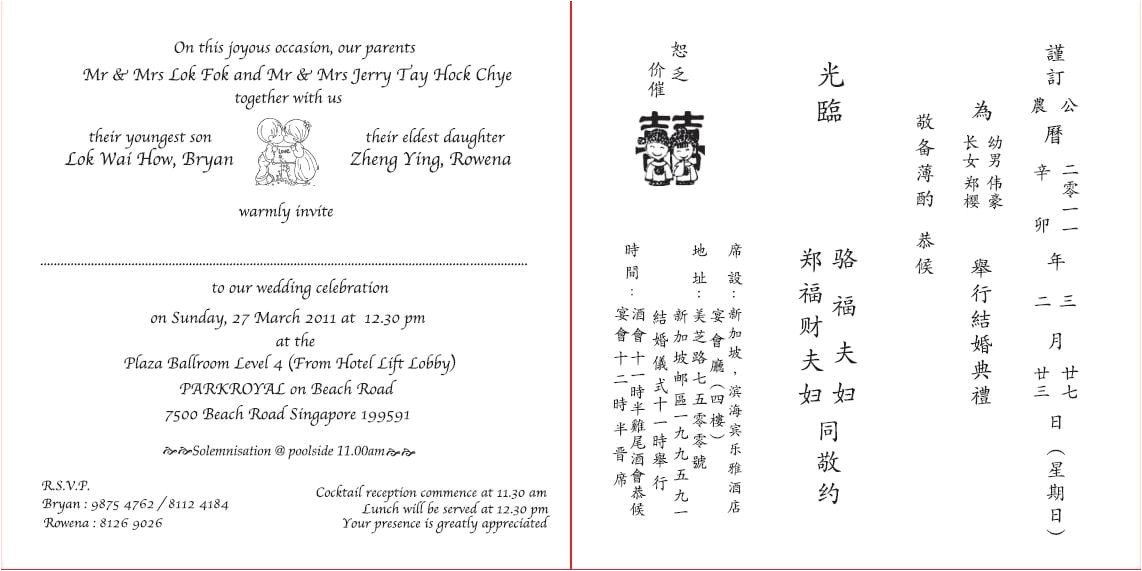 On this joyous occasion, our parents
Mr & Mrs Lok Fok and Mr & Mrs Jerry Tay Hock Chye
together with us
their youngest son
Lok Wai How, Bryan
Love
their eldest daughter
Zheng Ying, Rowena
warmly invite
to our wedding celebration
on Sunday, 27 March 2011 at 12.30 pm
at the
Plaza Ballroom Level 4 (From Hotel Lift Lobby)
PARKROYAL on Beach Road
7500 Beach Road Singapore 199591
Solemnisation @ poolside 11.00am
R.S.V.P.
Bryan : 9875 4762 / 8112 4184
Rowena : 8126 9026
Cocktail reception commence at 11.30 am
Lunch will be served at 12.30 pm
Your presence is greatly appreciated
謹訂
公農曆二零一一辛卯年三二月廿七廿三日（星期日）
為
幼男伟豪
长女郑樱
舉行結婚典禮
敬备薄酌 恭候
光臨
骆福夫妇
郑福财夫妇
同敬约
席設：新加坡，滨海宾乐雅酒店
宴會廳（四樓）
地址：美芝路七五零零號
新加坡邮區一九九五九一
結婚儀式十一時舉行
時間：酒會十一時半雞尾酒會恭候
宴會十二時半晋席
恕乏
价催
囍